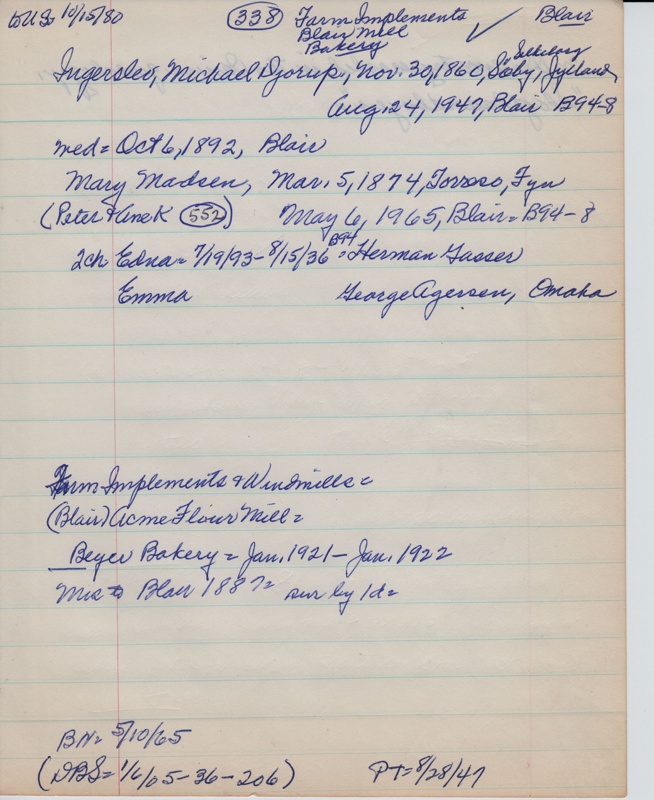 to US= 10/15/80 (338) Farm Implements Blair
Blair Mill
Bakery
Ingerslev, Michael Djorup, Nov. 30, 1860, Saby, Jylland,
Aug. 24, 1947, Blair B94-8
med= Oct 6, 1892, Blair
Mary Madsen, Mar. 5, 1874, Torroso, Fyn
(Peter + Ane K (552)) May 6, 1965, Blair= B94-8
2ch Edna= 7/19/93-8/15/36 B94 = Herman Gasser
Emma George Agersen, Omaha
Farm Implements & Windmills=
(Blair) Acme Flour Mill=
Beyer Bakery= Jan. 1921- Jan. 1922
Misc= Blair 1887= sur by 1d=
BN= 5/10/65
(DBS= 1/6/05-36-206) PT= 8/28/47